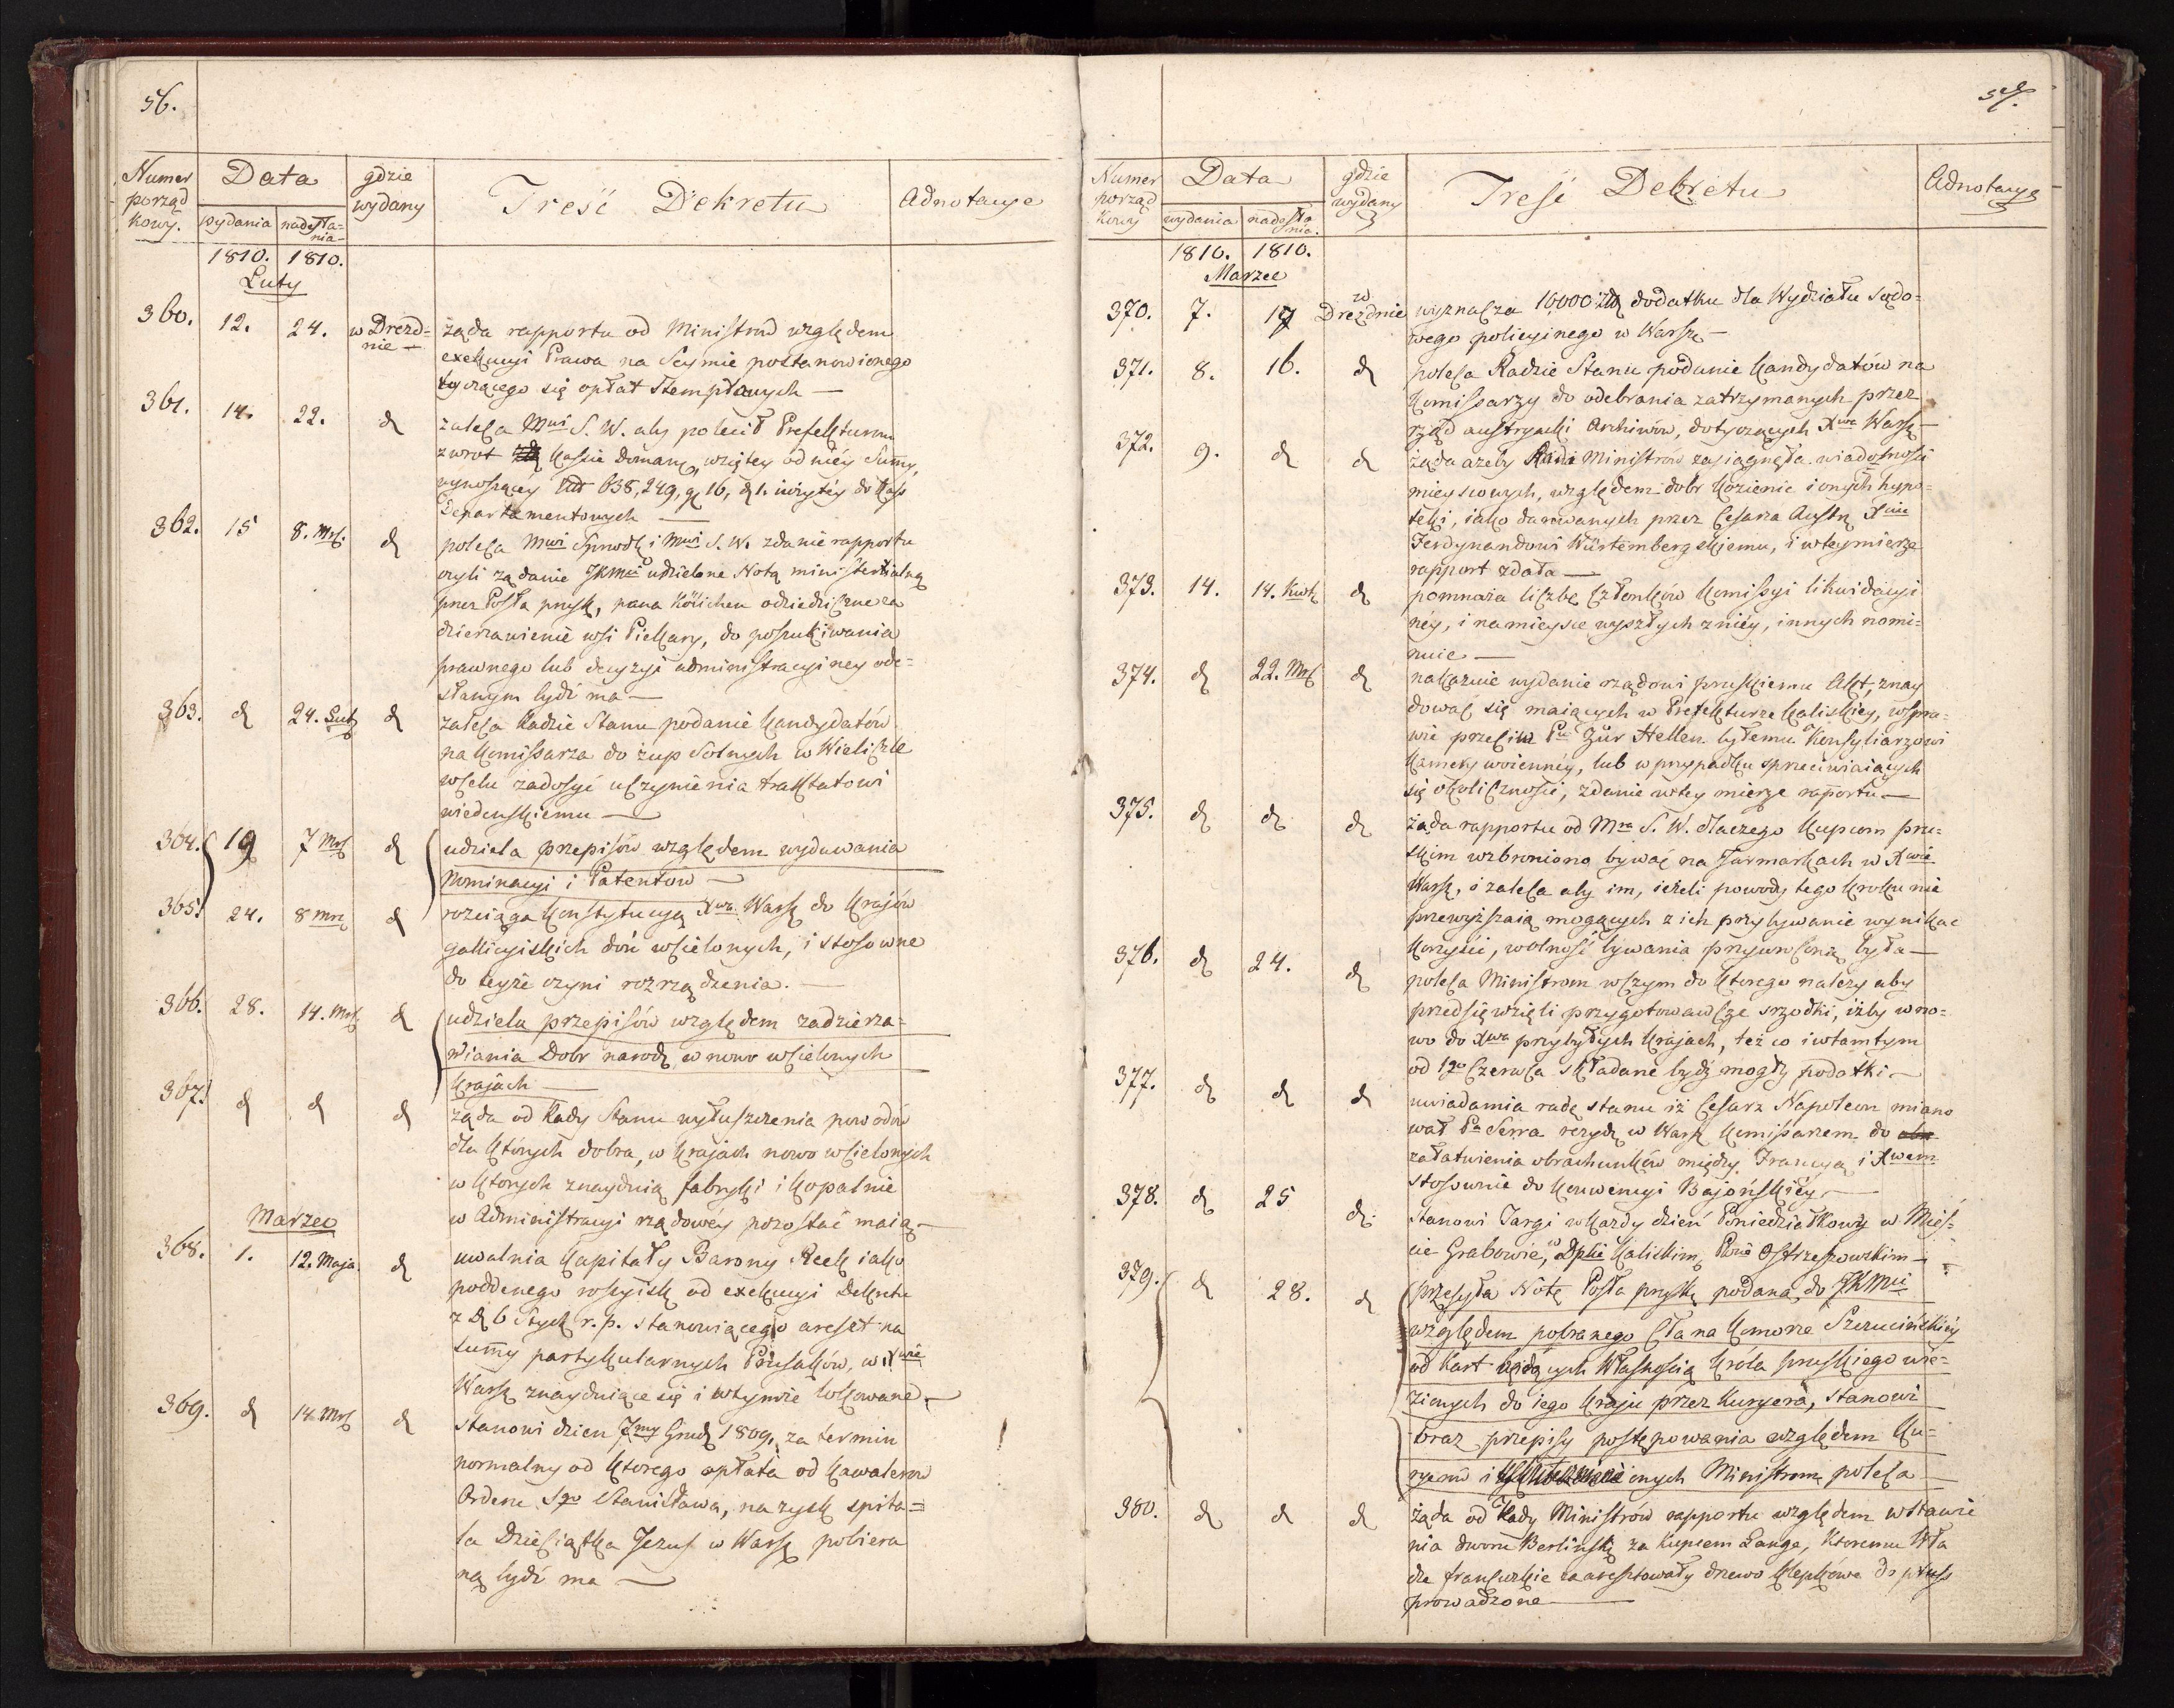 56.
Numer porząd kowy.
Data
wydania
nadesła=nia
gdzie wydany
Treść Dekretu
Adnotacye
1810. 1810.
Luty
360. 12. 24. w Drezd=nie — żąda rapportu od Ministrów względem
exekucyi Prawa na Seymie postanowionego
tyczącego się opłat stemplowych —
361. 14. 22. d zaleca Mwi S. W. aby polecił Prefekturom
zwrot kassie doman, wziętey od niéy summy,
wynoszącéy 638,249, g 16, d 1. do Kass
Departamentowych —
362. 15 8. Mrc. d poleca Mwi Sprwdl i Mwi S. W. zdanie rapportu
czyli żądanie JKMci udzielone Notą ministerialną
przez Posła prusk, pana o dziedziczne za
dzierżawienie wsi Piekary, do poszukiwania
prawnego lub decyzyi administracyiney ode=
słanym bydź ma —
363. d 24. Lut d zaleca Radzie Stanu podanie kandydatów
na Komissarza do żup Solnych w Wieliczce
w celu zadosyć uczynienia traktatowi
wiedeńskiemu —
364. 19 7 Mrc d udziela przepisów względem wydawania
Nominacyi i Patentow —
365. 24. 8 Mrc d rozciąga Konstytucyą Xwa Warsz do krajów
gallicyiskich doń wcielonych, i stosowne
do teyże czyni rozrządzenia. —
366. 28. 14. Mrc d udziela przepisów względem zadzierża=
wiania Dobr narod, w nowo wcielonych
krajach —
367. d d d żąda od Rady Stanu wyłuszczenia powodów
dla których dobra, w krajach nowo wcielonych
w ktorych znaydują fabryki i kopalnie
w Administracyi rządowéy pozostać maią —
Marzec
368. 1. 12. Maja d uwalnia kapitały Barony Reck iako
poddenego rossyisk od exekucyi Dekretu
z d 6 Stycz r. p. stanowiącego areszt na
summy partykularnych Prusaków, w Xwie
Warsz znayduiące się i w tymże lokowane —
369. d 14 Mrc d stanowi dzien 7my Grud 1809. za termin
normalny od ktorego opłata od kawalerów
Orderu Sgo Stanisława, na rzysk spita=
la Dzieciątka Jezus w Warsz pobiera
ną bydź ma —
57.
Numer porząd kowy
Data
wydania
nadesła nia.
gdzie wydany
Treść Dekretu
Adnotacye
1810. 1810.
Marzec
370. 7. 17 w Dreznie wyznacza 10,000 zł dodatku dla Wydziału sądo=
wego policyinego w Warsz —
371. 8. 16. d poleca Radzie Stanu podanie kandydatów na
Komissarzy do odebrania zatrzymanych przez
rząd austryacki Archiwów, dotyczących Xwa Warsz —
372. 9. d d żąda ażeby Rada Ministrów zasiągnęła wiadomości
mieyscowych, względem dobr Kozienic i onych hypo=
teki, iako darowanych przez Cesarza Austr Xciu
Ferdynandowi Würtembergskiemu, i w teymierze
rapport zdała —
373. 14. 14. Kwt d pomnaża liczbę członków Komissyi likwidacyi
néy, i na mieysce wyszłych z niéy, innych nomi=
nuie —
374. d 22. Mrc d nakazuie wydanie rządowi pruskiemu Akt, znay
dować się maiących w Prefekturze kaliskiéy, w spra=
wie przeciw Pu Zür Hellen byłemu Konsyliarzowi
Kamery woiennéy, lub w przypadku sprzeciwiaiących
się okoliczności, zdanie w tey mierze raportu —
375. d d d żąda rapportu od Mra S. W. dlaczego kupcom pru=
skim wzbroniono bywać na Jarmarkach w Xwie
Warsz, i zaleca aby im, ieżeli powody tego kroku nie
przewyższaią mogących z ich przybywanie wynikać
korzyści, wolność bywania przywróconą była —
376. d 24. d poleca Ministrom w czym do ktorego należy aby
przedsięwzięli przygotowawcze srzodki, iżby w no=
wo do Xwa przybyłych krajach, też co i w tamtym
od 1go Czerwca składane bydź mogły podatki —
377. d d d uwiadamia radę stanu iż Cesarz Napoleon miano
wał Pa Serra rezyd w Warsz Komissarzem do
załatwienia obrachunków między Francyą i Xwem
stosownie do Konwencyi Bajońskiéy —
378. d 25 d. stanowi Targi w każdy dzień Poniedziałkowy w Mieś=
cie Grabowie, w Dptie kaliskim, Pwie Ostrzeszowskim —
379. d 28. d przesyła Notę Posła prusk podaną do JKMci
względem pobranego cła na Komorze Szczucińskiéy
od kart będących Własnością króla pruskiego wie=
zionych do iego kraju przez Kuryera, stanowi
oraz przepisy postępowania względem Ku=
ryerów i onych Ministrom poleca —
380. d d d żąda od Rady Ministrów rapportu względem wstawie
nia dworu Berlinsk za kupcem Lange, ktoremu Wła
dze francuzkie zaaresztowały drzewo klepkowe do pruss
prowadzone —